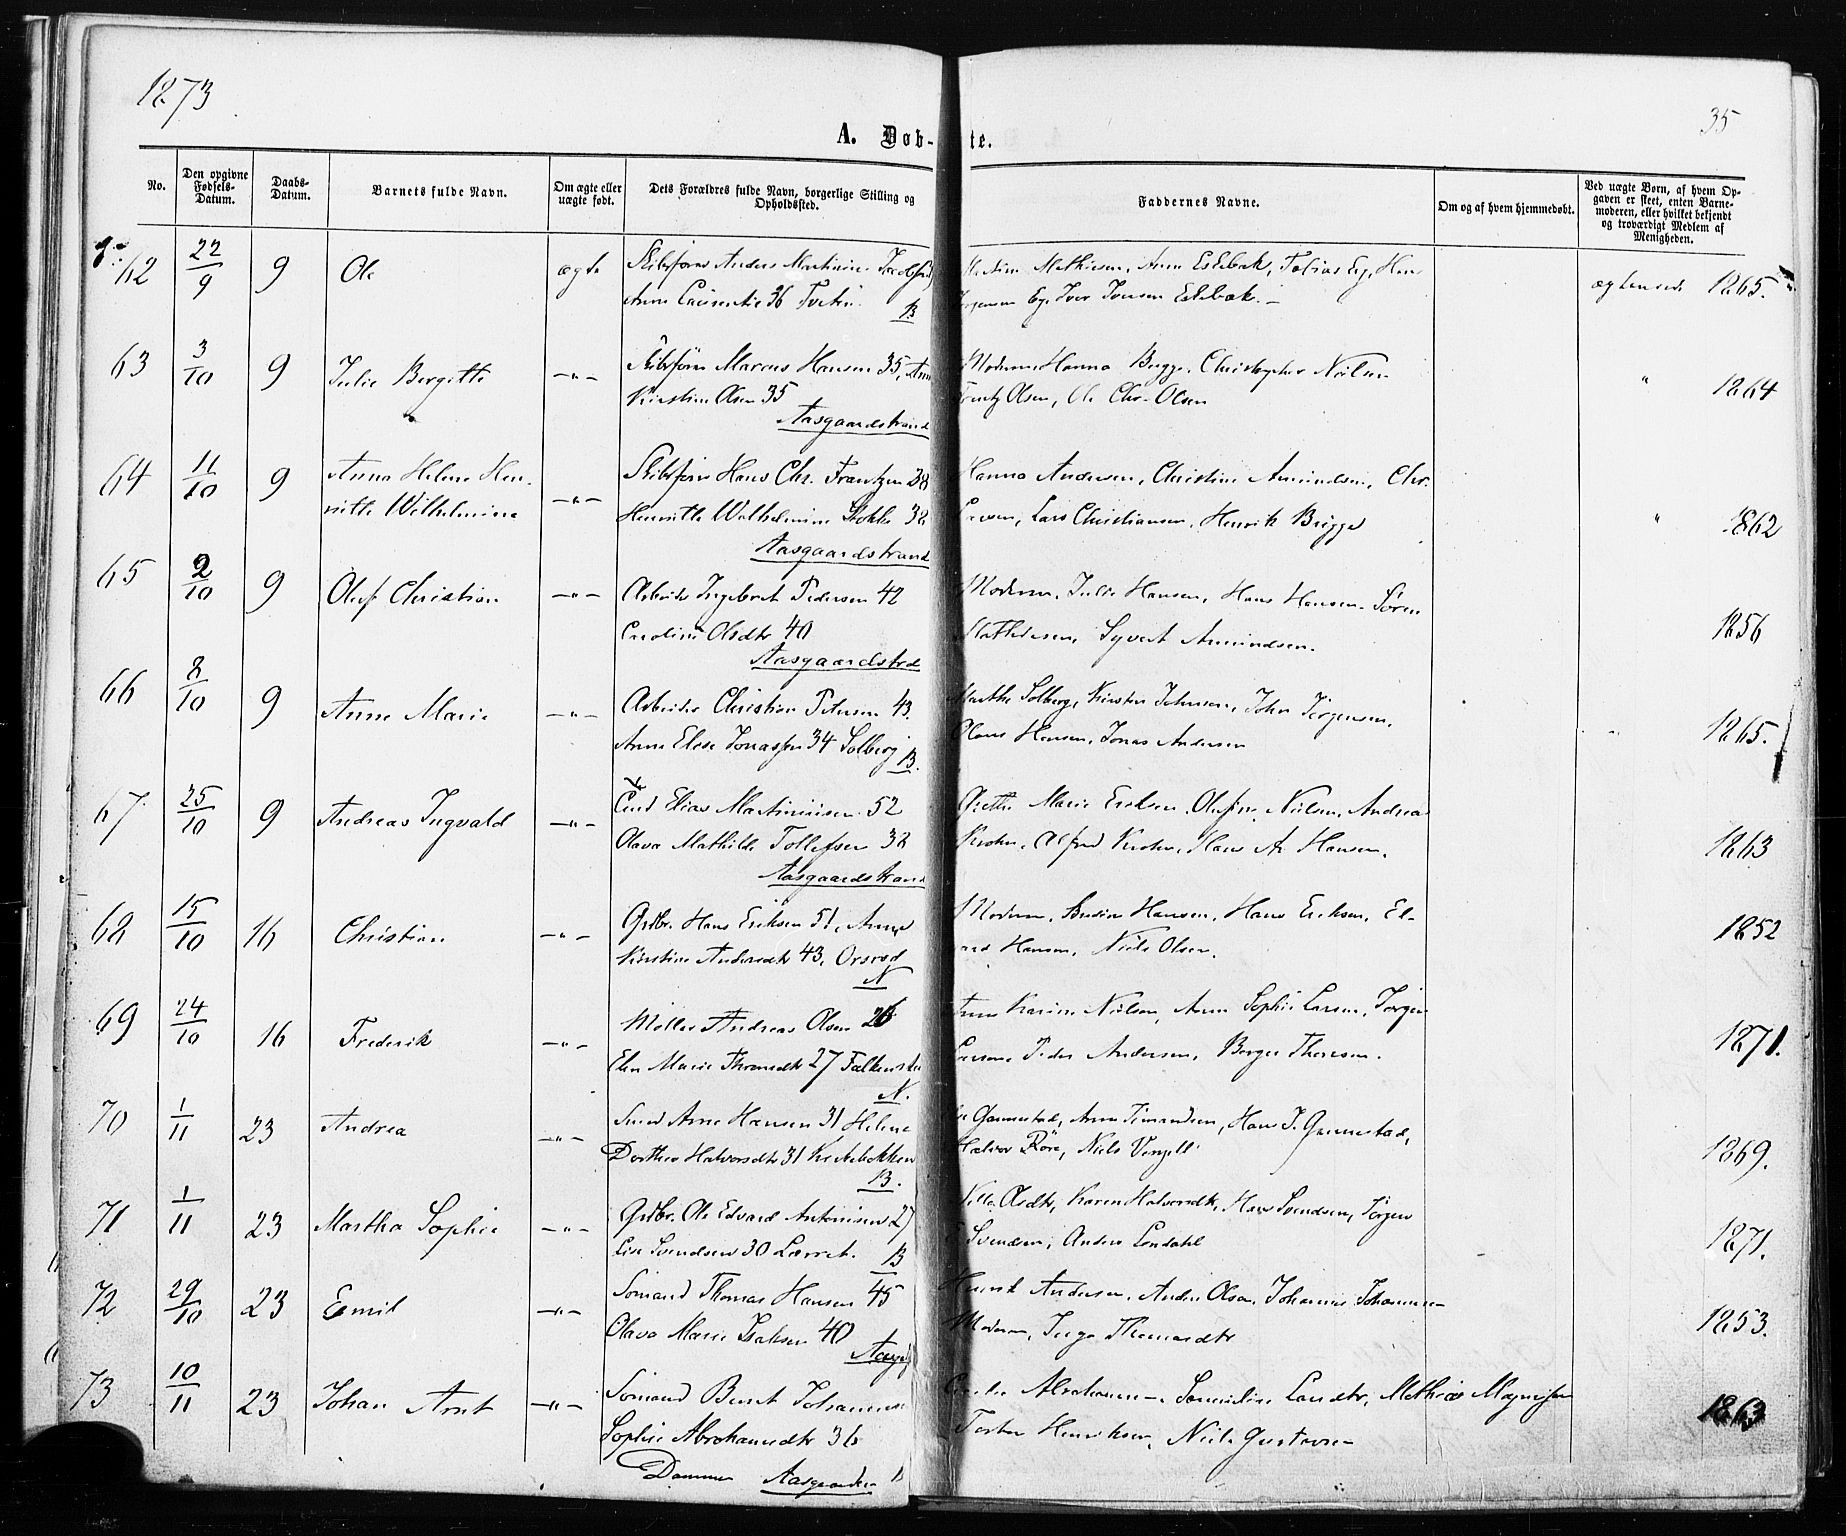 1873
35
A. Døb-te.
No.
Den opgivne Fødsels-Datum.
Daabs-Datum.
Barnets fulde Navn.
Om ægte eller uægte født.
Dets Forældres fulde Navn, borgerlige Stilling og Opholdssted.
Faddernes Navne.
Om og af hvem hjemmedøbt.
Ved uægte Børn, af hvem Opgaven er skeet, enten Barnemoderen, eller hvilket bekjendt og troværdigt Medlem af Menigheden.
62 22/9 9 Ole ægte Skibsfører Anders Martinius
Anne Laurentie 36 B
Mathisen, Anne Eskebæk, Tobias Eg, Hans
Jørgensen Eg, Iver Iversen Eskebæk.
1865.
63 3/10 9 Julie Bergitte -"- Skibsfører Marcus Hansen 35, Anne
Kirstine Olsen 35
Aasgaardstrand
Moderen, Hanna Brygge, Christopher Nielsen
Olsen, Ole Chr. Olsen
" 1864
64 11/10 9 Anna Helene Hen-
riette Wilhelmine -"- Skibsfører Hans Chr. Frantzen 38
Henriette Wilhelmine 38
Aasgaardstrand
Hanna Andersen, Christine Amundsen, Chr.
Larsen, Lars Christiansen, Henrik Brygge
" 1862
65 2/10 9 Oluf Christian -"- Arbeider Ingebret Pedersen 42
Caroline Olsdtr 40
Aasgaardstrd
Moderen, Julie Hansen, Hans Hansen, Søren
Mathiesen, Syvert Amundsen.
1856
66 8/10 9 Anne Marie -"- Arbeider Christian Petersen 43.
Anne Elise 34 Solberg B.
Marthe Solberg, Kirsten Johnsen, John Jørgensen,
Olaus Hansen, Jonas Andersen
1865.
67 25/10 9 Andreas Ingvald -"- Elias Martiniusen 52
Olava Mathilde Tollefsen 38
Aasgaardstrand
Grethe Marie Nielsen, Andreas
Krohn, Alfred Krohn, Hans A. Hansen.
1863
68 15/10 16 Christian -"- Grdbr. Hans Eriksen 51, Anne
Kirstine Andersdtr 43, Orerød
N
Moderen, Hansen, Hans Eriksen, Ed-
vard Hansen, Niels Olsen.
1852
69 24/10 16 Frederik -"- Møller Andreas Olsen 26
Elen Marie 27 Falkensten
N.
Karine Nielsen, Anne Sophie Larsen, Jørgen
Larsen, Peder Andersen, Borger Thoresen.
1871.
70 1/11 23 Andrea -"- Smed Arne Hansen 31 Helene
Dorthea Halvorsdtr 31
B.
Gannestad, Anne Simensen, Hans J. Gannestad,
Halvor Røre, Niels
1869.
71 1/11 23 Martha Sophie -"- Grdbr. Ole Edvard Antonisen 27
Lise Svendsen 30 B
Olsdtr, Karen Halvorsdtr, Hans Svendsen, Jørgen
Svendsen, Anders Londahl
1871.
72 29/10 23 Emil -"- Sømand Thomas Hansen 45
Olava Marie Isaksen 40
Aasgd
Henrik Andersen, Andr. Olsen, Johannes Johannesen
Moderen, Inga Thomasdtr
1853.
73 10/11 23 Johan Arnt -"- Sømand Bernt Johannesen
Sophie Abrahamsdtr 36
Aasgaardstr
Abrahamsen, Larsdtr, Mathias Magnussen
Henriksen, Niels Gustavsen
1863